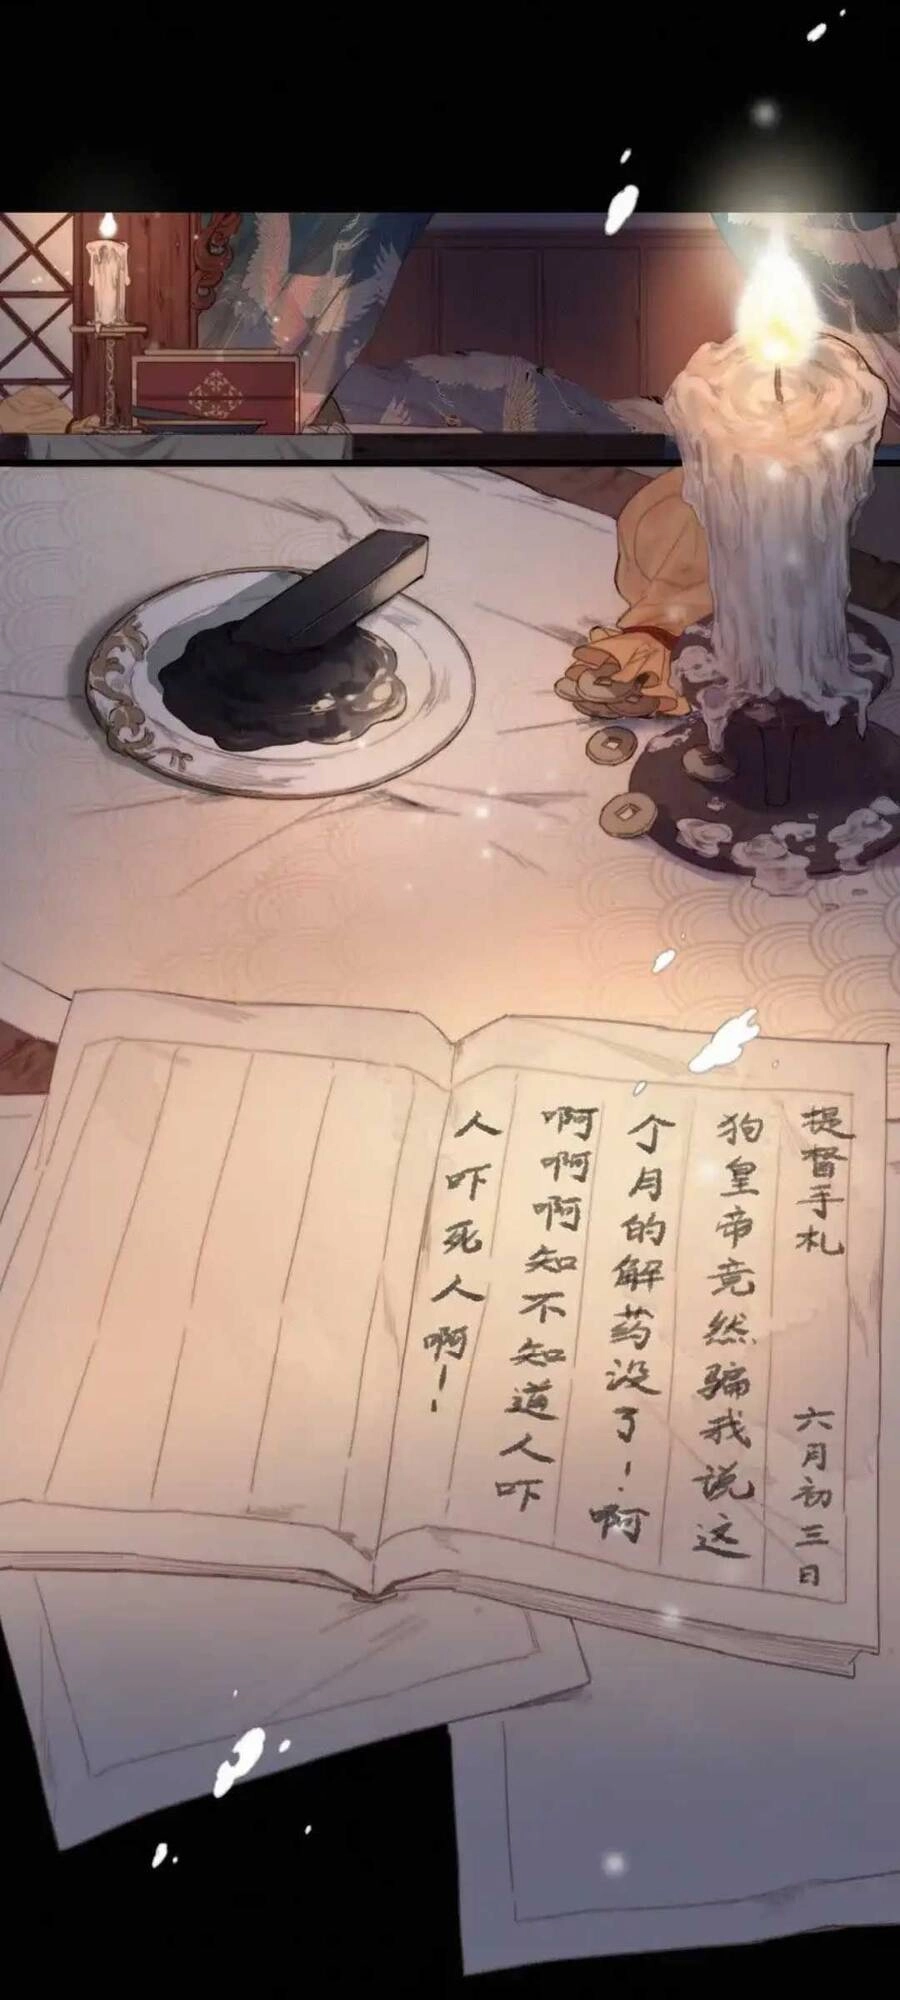 提督手札 六月初三日
狗皇帝竟然骗我说这
个月的解药没了！啊
啊啊啊知不知道人吓
人吓死人啊！！